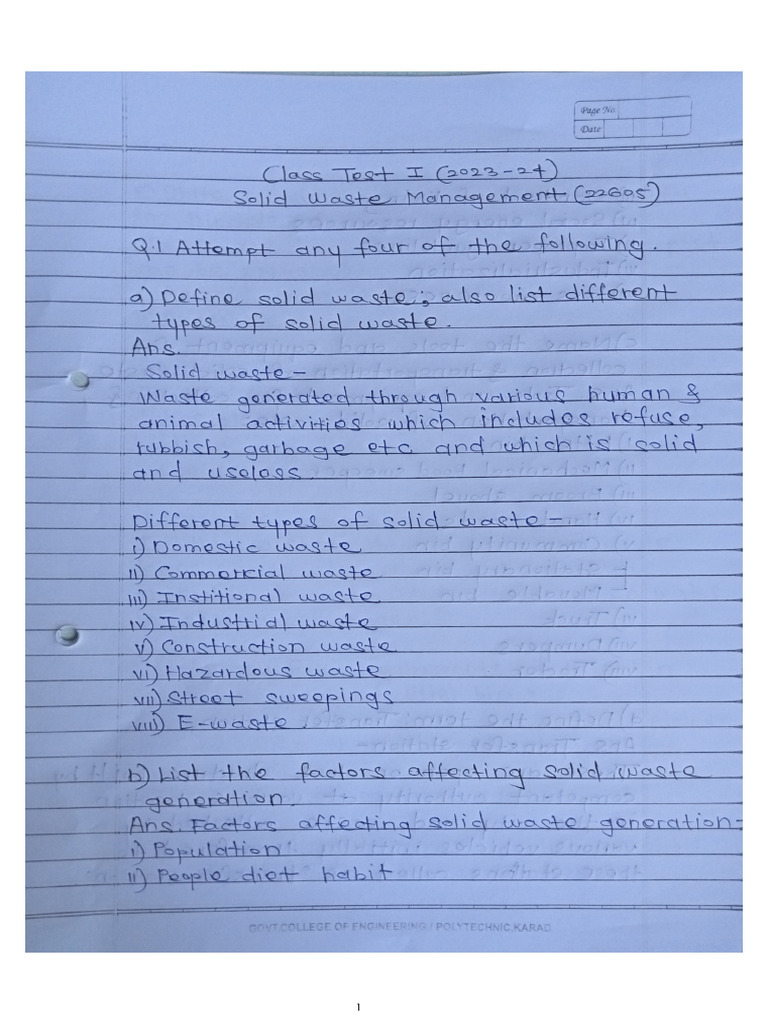 Page No.
Date
Class Test I (2023-24)
Solid Waste Management (22605)
Q.1 Attempt any four of the following.
a) Define solid waste, also list different
types of solid waste.
Ans.
Solid waste-
Waste generated through various human &
animal activities which includes refuse,
rubbish, garbage etc and which is solid
and useless.
Different types of solid waste-
i) Domestic waste
ii) Commercial waste
iii) Institional waste
iv) Industrial waste
v) Construction waste
vi) Hazardous waste
vii) Street sweepings
viii) E-waste.
b) List the factors affecting solid waste
generation.
Ans. Factors affecting solid waste generation-
i) Population
ii) People diet habit
GOVT.COLLEGE OF ENGINEERING / POLYTECHNIC,KARAD
1